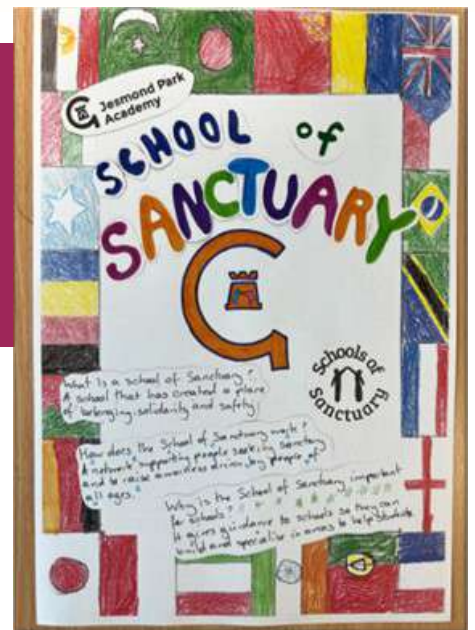 Jesmond Park
Academy
SCHOOL of
SANCTUARY
Schools of
Sanctuary
What is a school of Sanctuary?
A school that has created a place
of belonging, solidarity and safety.
How does the School of Sanctuary work?
A network supporting people seeking sanctuary
and to raise awareness driven by people of
all ages.
Why is the School of Sanctuary important
for schools?
It gives guidance to schools so they can
build and specialise in areas to help students.